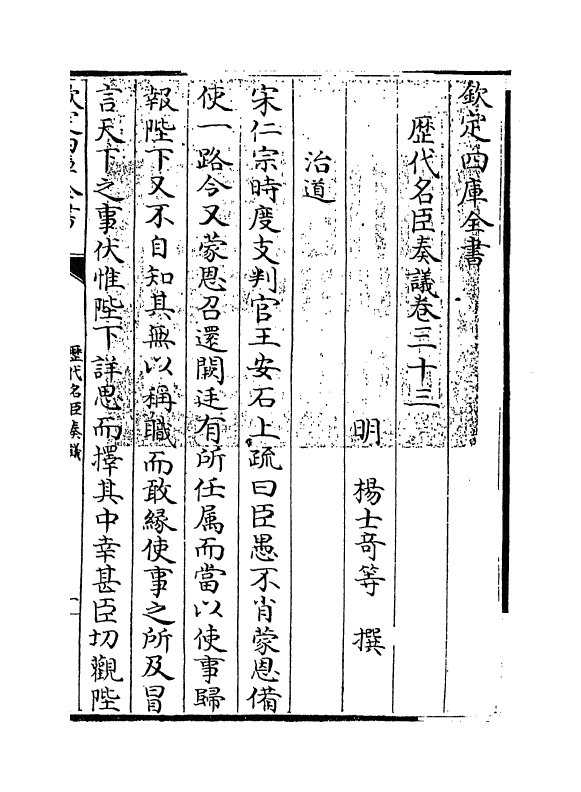 欽定四庫全書
歴代名臣奏議卷三十三
明 楊士竒等 撰
治道
宋仁宗時度支判官王安石上疏曰臣愚不肖蒙恩備
使一路今又蒙恩召還闕廷有所任属而當以使事歸
報陛下又不自知其無以稱職而敢緣使事之所及冒
言天下之事伏惟陛下詳思而擇其中幸甚臣切觀陛
欽定四庫全書
歴代名臣奏議
一